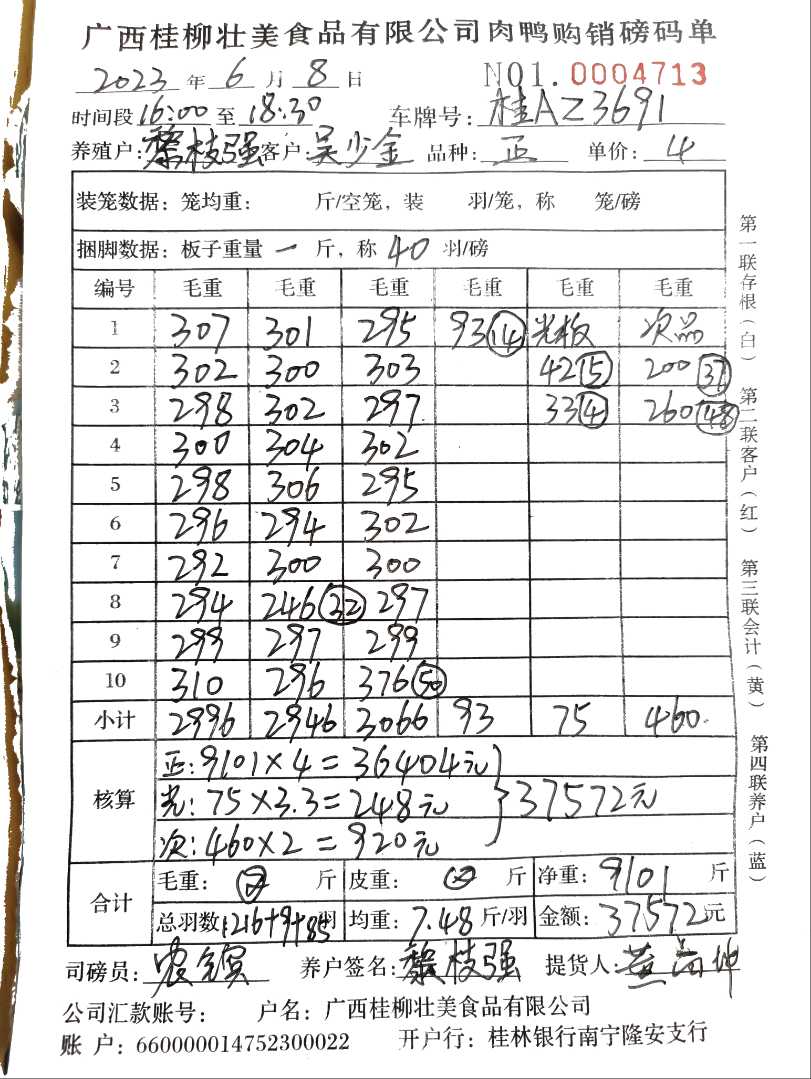 广西桂柳壮美食品有限公司肉鸭购销磅码单
2023 年 6 月 8 日 NO1. 0004713
时间段 16:00 至 18:30 车牌号: 桂AZ3691
养殖户: 黎枝强 客户: 吴少金 品种: 正 单价: 4
装笼数据: 笼均重: 斤/空笼, 装 羽/笼, 称 笼/磅
捆脚数据: 板子重量 一 斤, 称 40 羽/磅
编号 毛重 毛重 毛重 毛重 毛重 毛重
1 307 301 295 93(14) 光板 次品
2 302 300 303 42(5) 200(37)
3 298 302 297 33(4) 260(48)
4 300 304 302
5 298 306 295
6 296 294 302
7 292 300 300
8 294 246(32) 297
9 299 297 299
10 310 296 376(50)
小计 2996 2946 3066 93 75 460
核算 正: 9101×4=36404元
光: 75×3.3=248元 } 37572元
次: 460×2=920元
合计 毛重: 斤 皮重: 斤 净重: 9101 斤
总羽数: 1216+9+85 羽 均重: 7.48 斤/羽 金额: 37572 元
司磅员: 养户签名: 黎枝强 提货人:
公司汇款账号: 户名: 广西桂柳壮美食品有限公司
账 户: 660000014752300022 开户行: 桂林银行南宁隆安支行
第一联存根(白) 第二联客户(红) 第三联会计(黄) 第四联养户(蓝)